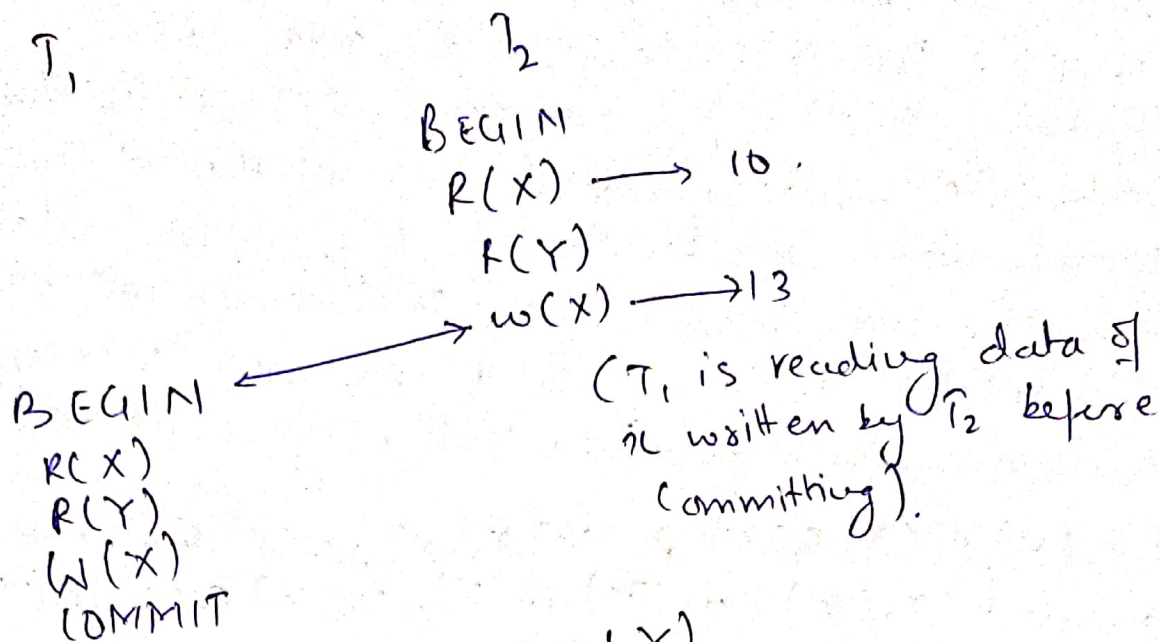 T1 T2
BEGIN
R(X) → 10.
R(Y)
W(X) → 13
(T1 is reading data of
x written by T2 before
committing).
BEGIN
R(X)
R(Y)
W(X)
COMMIT